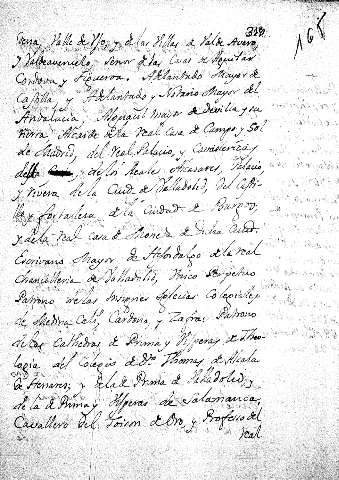 168
cena, Valle de Yso, y de las Villas de Val de Avero,
y Valdeavenuelo, Señor de las Casas de Aguilar
Cordova y Figueroa. Adelantado Mayor de
Castilla, y Adelantado y Notario Mayor del
Andalucia, Alguacil mayor de Sevilla y su
tierra Alcaide de la real Casa de Campo, y Sol
de Madrid, del real Palacio, y Cavallerizas
de los Reales Alcazares, Palacio
y rivera de la Ciud. de Valladolid, del Casti-
llo, y fortaleza de la Ciudad de Burgos,
y de la real Casa de Moneda de dicha Ciud.
Escrivano Mayor de Hijosdalgo de la real
Chancilleria de Valladolid, Unico Perpetuo
Patrono de las Insignes Iglesias Colegiales
de Medina Celi, Cardona, y Zafra: Patrono
de las Cathedras de Prima y Visperas de Theo-
logia, del Colegio de Sto. Thomas de Alcala
de Henares; y de la de Prima de Valladolid, y
de la de Prima y Visperas de Salamanca,
Cavallero del Toison de Oro, y Profeso del
real